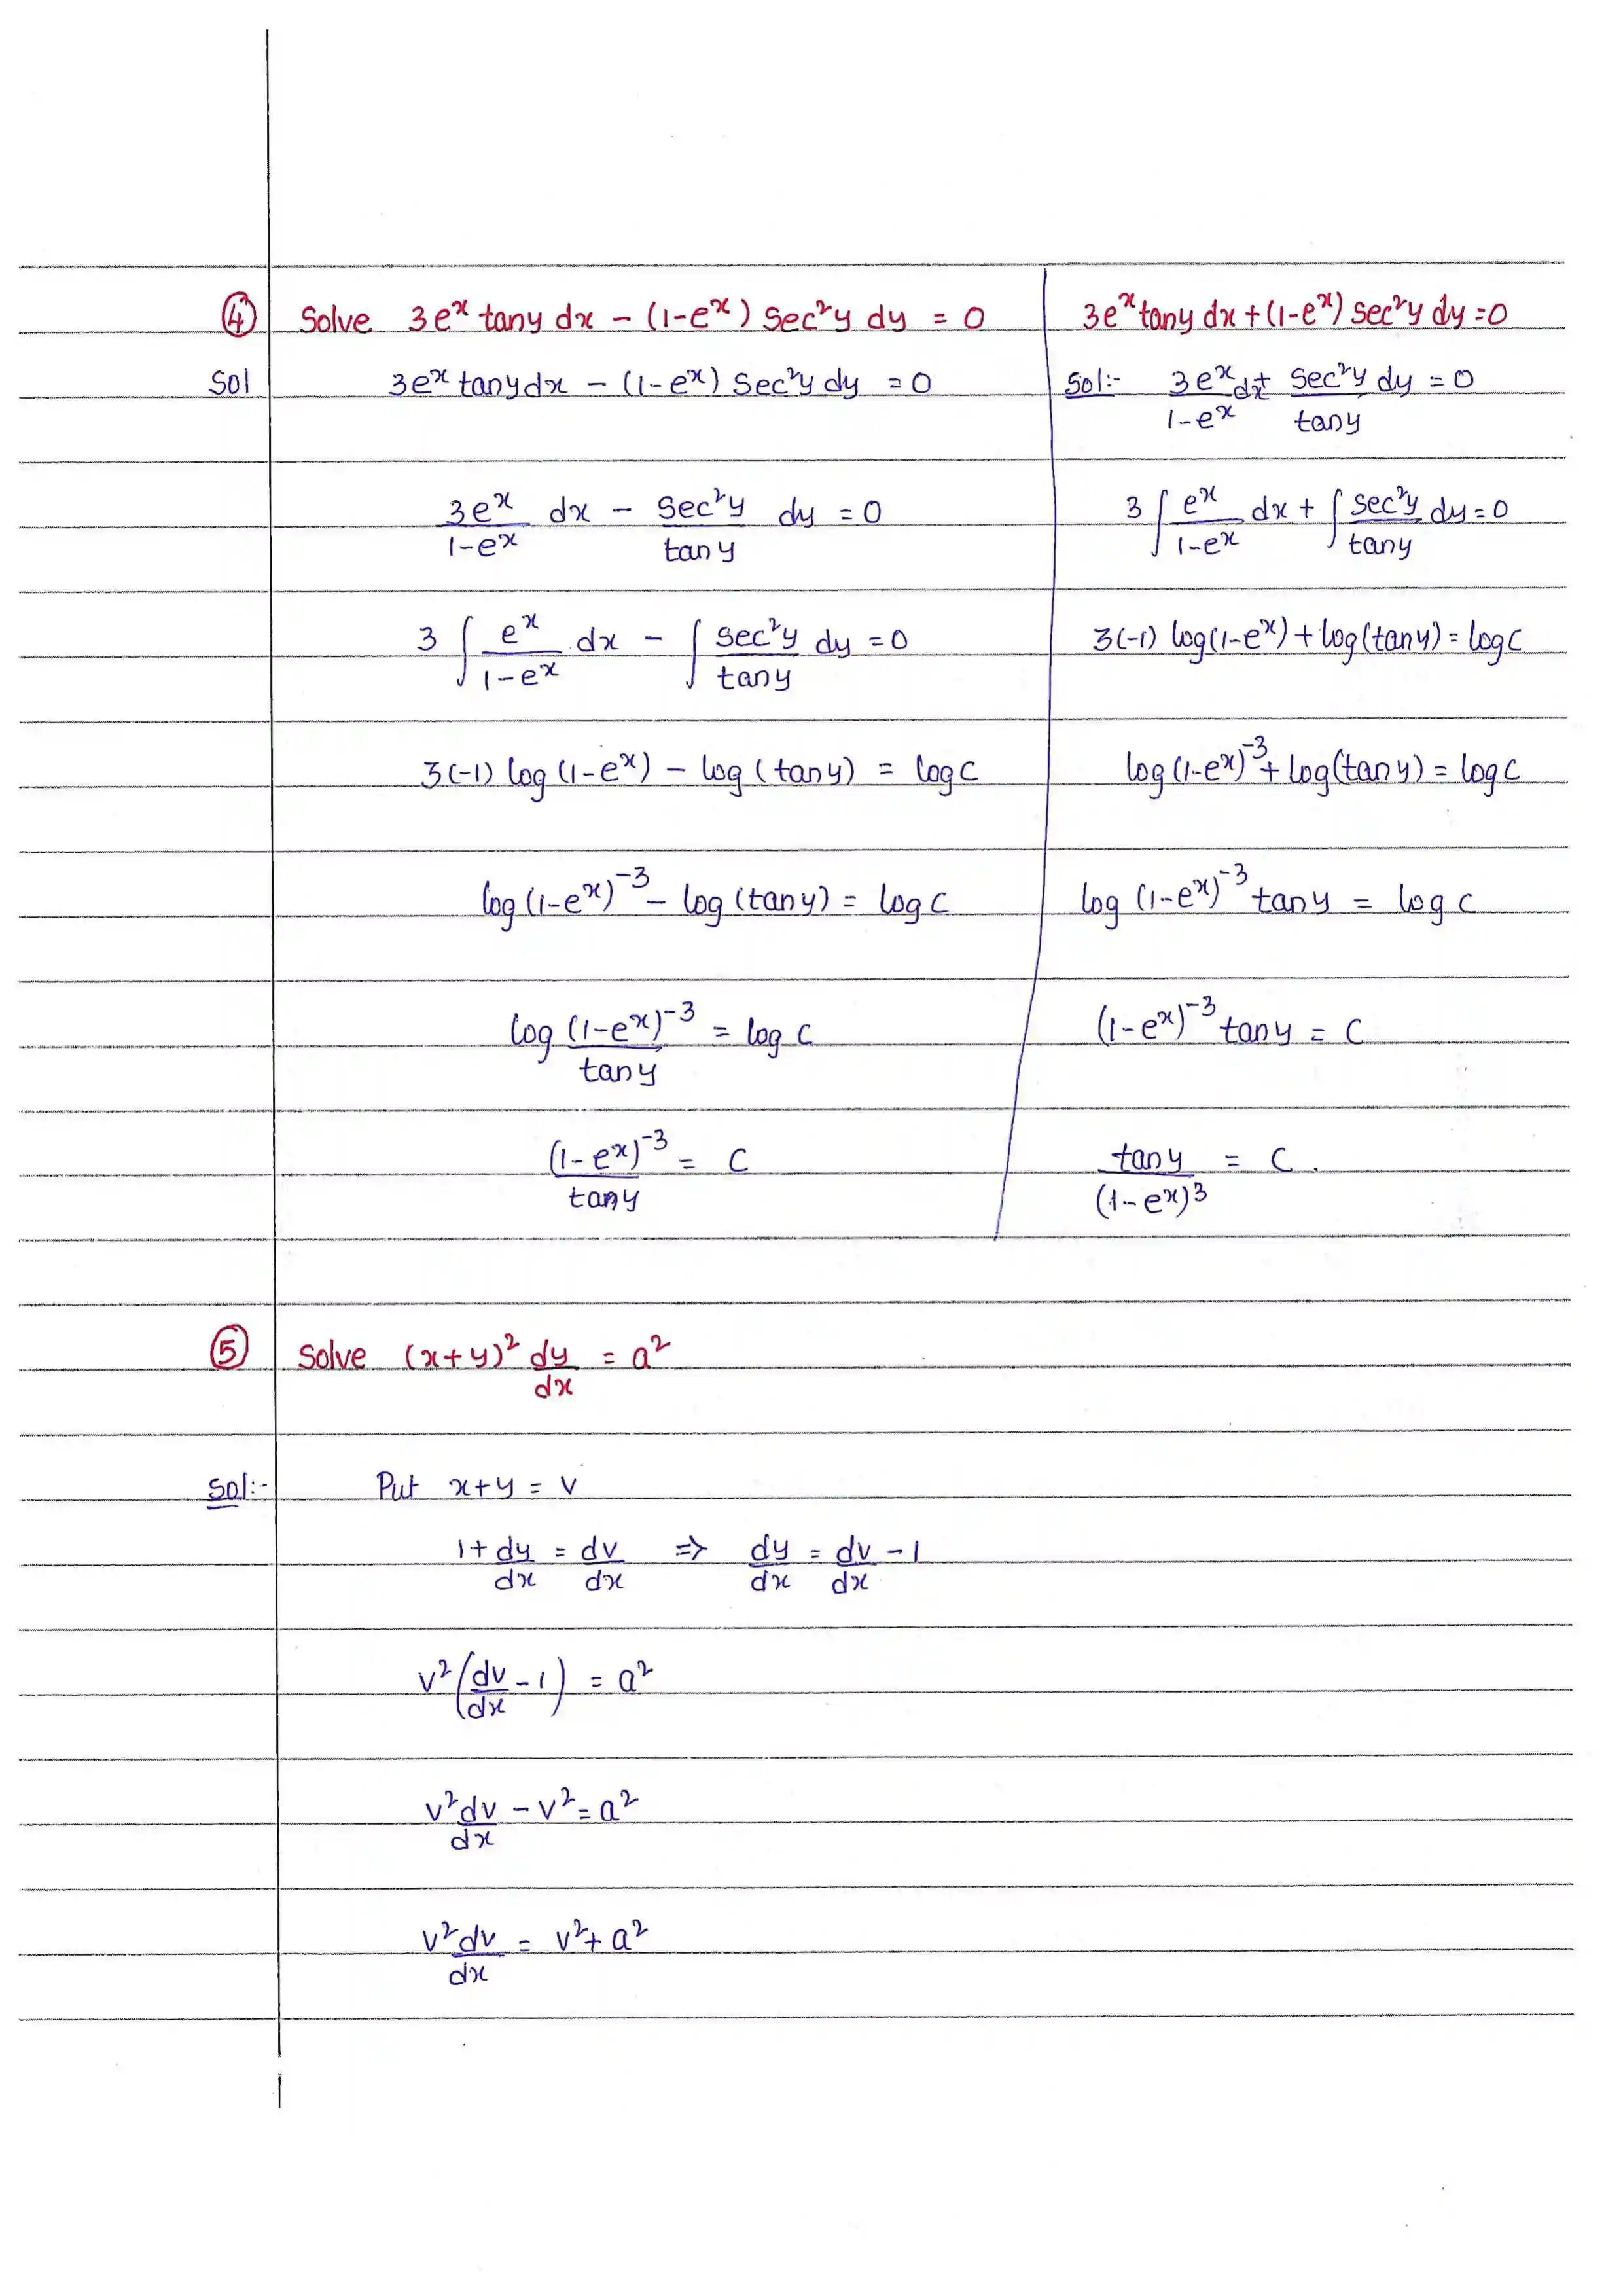 ④ Solve 3eˣ tany dx - (1-eˣ) sec²y dy = 0
Sol 3eˣ tany dx - (1-eˣ) Sec²y dy = 0
3eˣ/(1-eˣ) dx - Sec²y/tany dy = 0
3 ∫ eˣ/(1-eˣ) dx - ∫ sec²y/tany dy = 0
3(-1) log (1-eˣ) - log (tany) = log c
log (1-eˣ)⁻³ - log (tany) = log c
log (1-eˣ)⁻³/tany = log c
(1-eˣ)⁻³/tany = c
3eˣ tany dx + (1-eˣ) sec²y dy = 0
Sol:- 3eˣ/(1-eˣ) dx + sec²y/tany dy = 0
3 ∫ eˣ/(1-eˣ) dx + ∫ sec²y/tany dy = 0
3(-1) log(1-eˣ) + log(tany) = log c
log (1-eˣ)⁻³ + log(tany) = log c
log (1-eˣ)⁻³ tany = log c
(1-eˣ)⁻³ tany = c
tany/(1-eˣ)³ = c.
⑤ Solve (x+y)² dy/dx = a²
Sol:- Put x+y = v
1 + dy/dx = dv/dx ⇒ dy/dx = dv/dx - 1
v² (dv/dx - 1) = a²
v² dv/dx - v² = a²
v² dv/dx = v² + a²